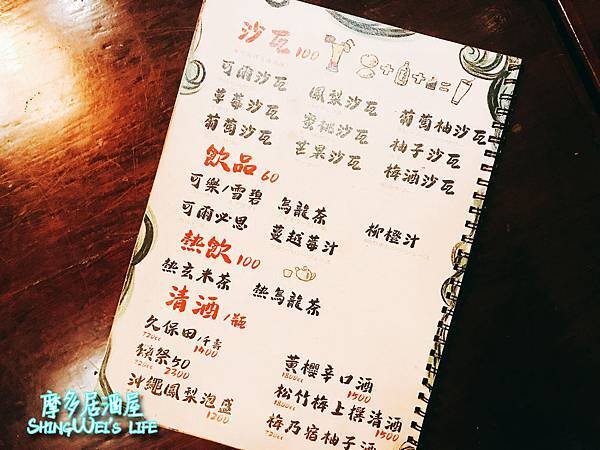 沙瓦100
可爾沙瓦 鳳梨沙瓦 葡萄柚沙瓦
草莓沙瓦 蜜桃沙瓦 柚子沙瓦
葡萄沙瓦 芒果沙瓦 梅酒沙瓦
飲品60
可樂/雪碧 烏龍茶 柳橙汁
可爾必思 蔓越莓汁
熱飲100
熱玄米茶 熱烏龍茶
清酒/瓶
久保田/千壽 黃櫻辛口酒
720cc 1400 1800cc 1500
獺祭50 松竹梅上撰清酒
720cc 2300 1800cc 1500
沖繩鳳梨泡盛 梅乃宿柚子酒
720cc 1200 720cc
摩多居酒屋
SHINGWEI'S LIFE